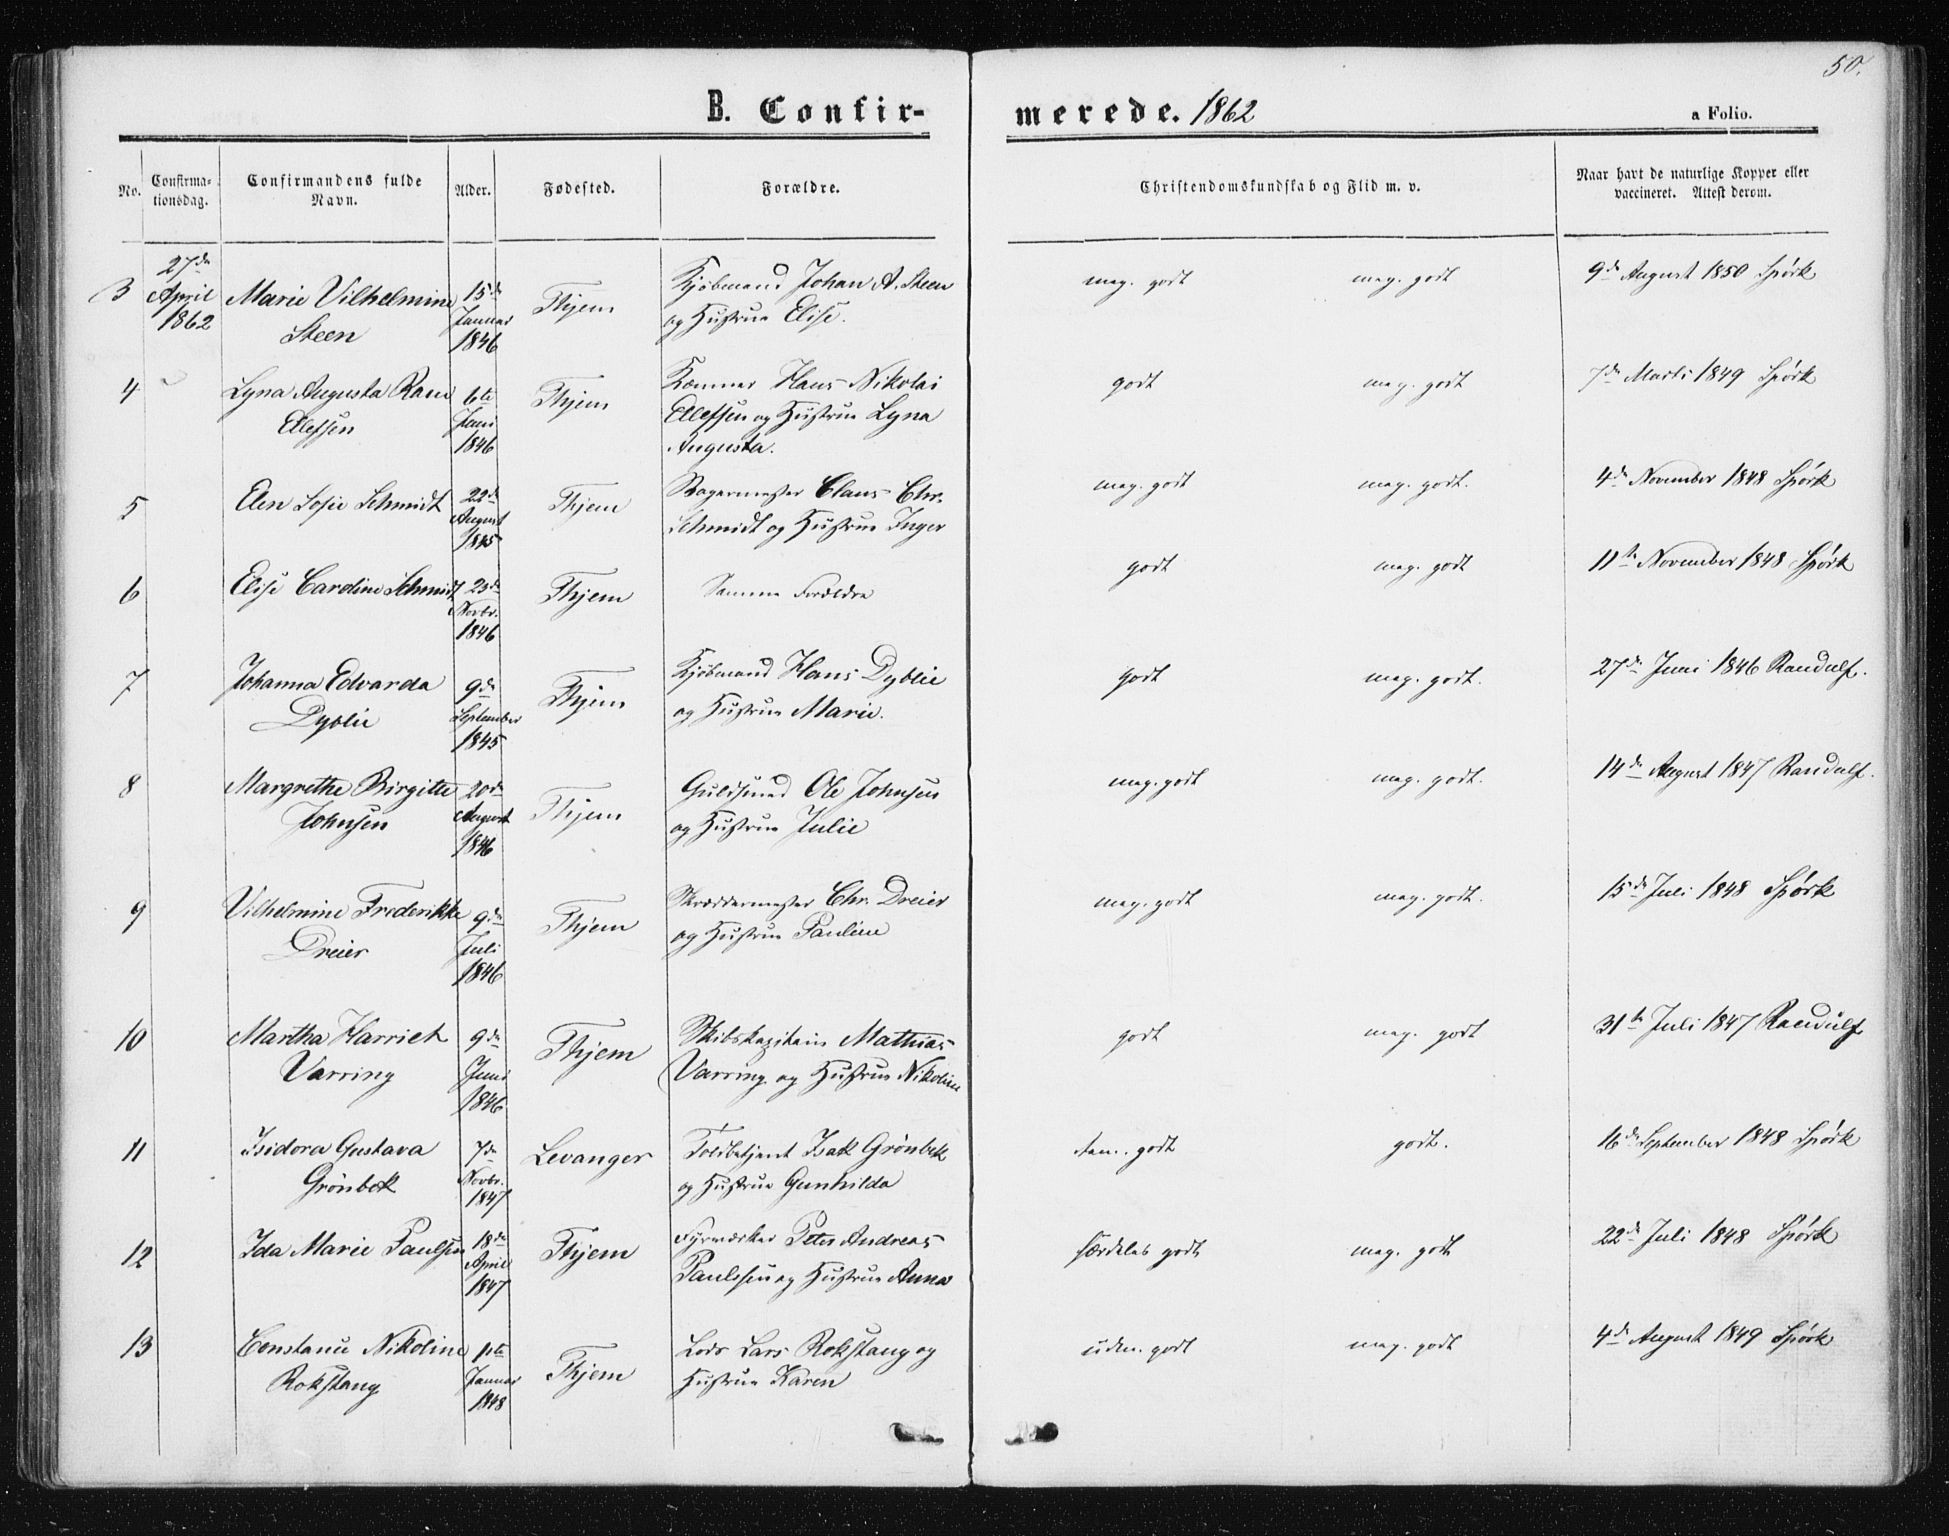 50.
B. Confirmerede. 1862
a Folio.
No.
Confirmationsdag.
Confirmandens fulde Navn.
Alder.
Fødested.
Forældre.
Christendomskundskab og Flid m. v.
Naar havt de naturlige Kopper eller vaccineret. Attest derom.
3
27de
April
1862
Marie Vilhelmine
Steen
15de
Januar
1846
Thjem
Kjøbmand Johan A. Steen
og Hustrue Elise.
meg. godt
meg. godt
9de August 1850 Spörk
4
Lyna Augusta Ram
Ellefsen
6te
Juni
1846
Thjem
Kæmner Hans Nikolai
Ellefsen og Hustrue Lyna
Augusta.
godt
meg. godt
7de Marts 1849 Spörk
5
Elen Sofie Schmidt
22de
August
1845
Thjem
Bagermester Claus Chr.
Schmidt og Hustrue Inger
meg. godt
meg. godt.
4de November 1848 Spörk
6
Elise Caroline Schmidt
23de
Novbr.
1846
Thjem
Samme Forældre
godt
meg. godt
11te November 1848 Spörk
7
Johanna Edvarda
Dyblie
9de
September
1845
Thjem
Kjøbmand Hans Dyblie
og Hustrue Marie.
godt
meg. godt.
27de Juni 1846 Randulf.
8
Margrethe Birgitte
Johnsen
20de
August
1846
Thjem
Guldsmed Ole Johnsen
og Hustrue Julie
meg. godt
meg. godt.
14de August 1847 Randulf.
9
Vilhelmine Frederikke
Dreier
9de
Juli
1846
Thjem
Skræddermester Chr. Dreier
og Hustrue Pauline
meg. godt
meg. godt.
15de Juli 1848 Spörk
10
Martha Harriet
Varring
9de
Juni
1846
Thjem
Skibskapitain Mathias
Varring og Hustrue Nikoline
godt
meg. godt
31te Juli 1847 Randulf
11
Isidora Gustava
Grönbek
7de
Novbr.
1847
Levanger
Toldbetjent Isak Grönbek
og Hustrue Gunhilda
tem. godt
godt.
16de September 1848 Spörk
12
Ida Marie Paulsen
18de
April
1847
Thjem
Fyrverker Peter Andreas
Paulssen og Hustrue Anna
særdeles godt
meg. godt
22de Juli 1848 Spörk
13
Constance Nikoline
Rokstang
1ste
Januar
1848
Thjem
Lods Lars Rokstang og
Hustrue Karen
udm. godt
meg. godt
4de August 1849 Spörk